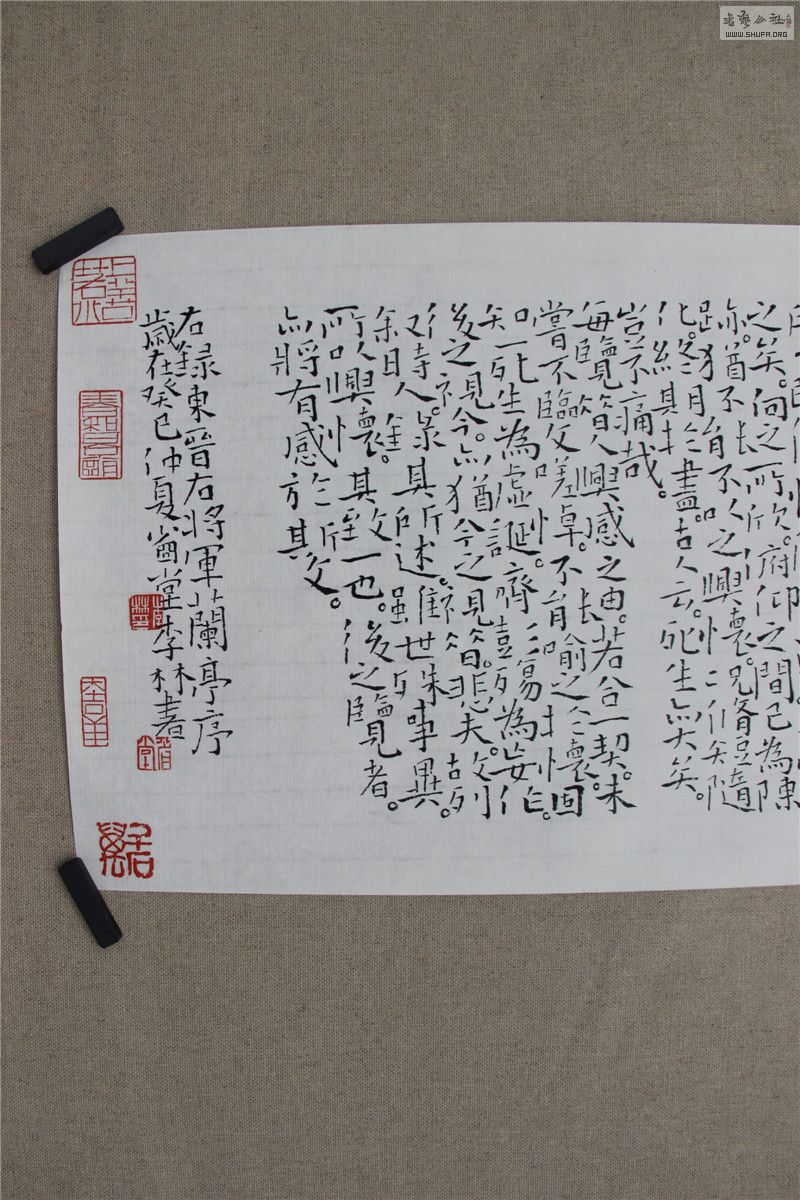 之矣。向之所欣。府仰之間已為陳
跡。猶不能不以之興懷。況脩短隨
化。終期於盡。古人云。死生亦大矣。
豈不痛哉。
每覽昔人興感之由。若合一契。未
嘗不臨文嗟悼。不能喻之於懷。固
知一死生為虛誕。齊彭殤為妄作。
後之視今。亦猶今之視昔。悲夫。故列
敘時人。錄其所述。雖世殊事異。
所以興懷。其致一也。後之覽者。
亦將有感於斯文。
右錄東晉右將軍蘭亭序
歲在癸巳仲夏堂李林書
WWW.SHUFA.ORG